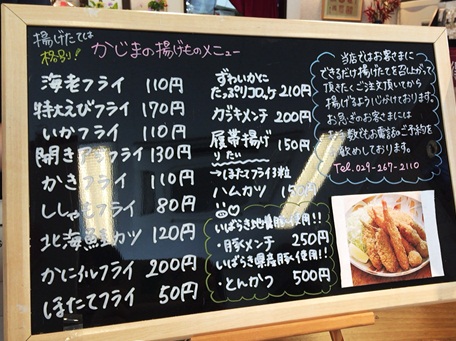 揚げたては
格別!
かじまの揚げものメニュー
海老フライ 110円
特大えびフライ 170円
いかフライ 110円
開き フライ 130円
かきフライ 110円
ししゃもフライ 80円
北海 カツ 120円
かに フライ 200円
ほたてフライ 50円
ずわいかに
たっぷりコロッケ 210円
カズキメンチ 200円
揚げ 150円
ほたてフライ3粒
ハムカツ 150円
いばらき地養豚使用!!
・豚メンチ 250円
いばらき県産豚使用!!
・とんかつ 500円
当店ではお客さまに
できるだけ揚げたてを召上がって
頂きたくご注文頂いてから
揚げるよう心がけております。
お急ぎのお客さまには
お手数でもお電話のご予約を
お勧めしております。
Tel.029-267-2110